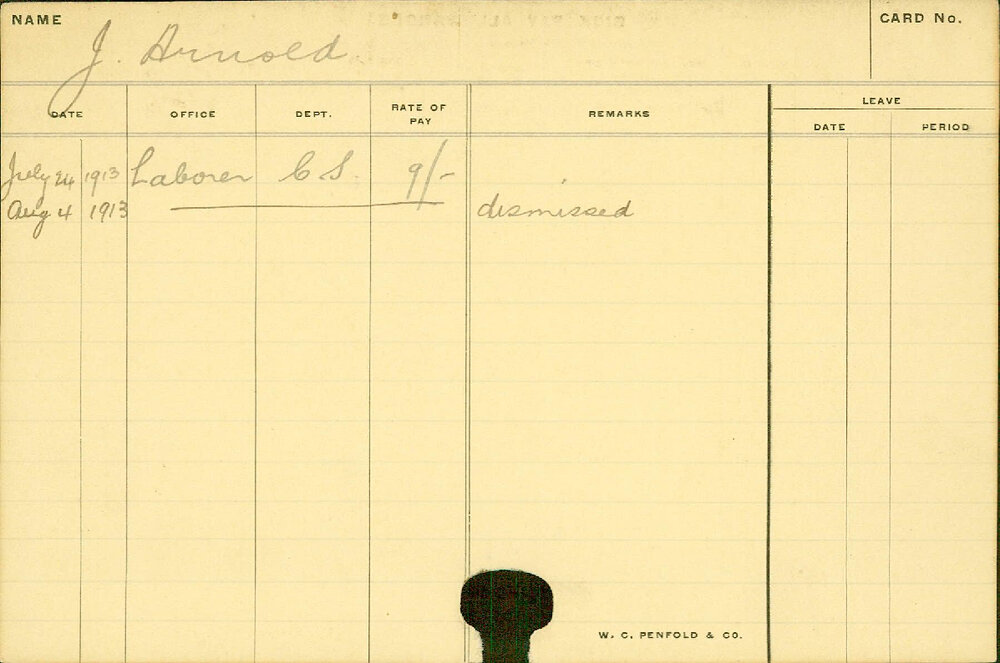 NAME J. Arnold CARD No.
DATE OFFICE DEPT. RATE OF PAY REMARKS LEAVE
DATE PERIOD
July 24 1913 Laborer C S. 9/-
Aug 4 1913 dismissed
W. C. PENFOLD & CO.